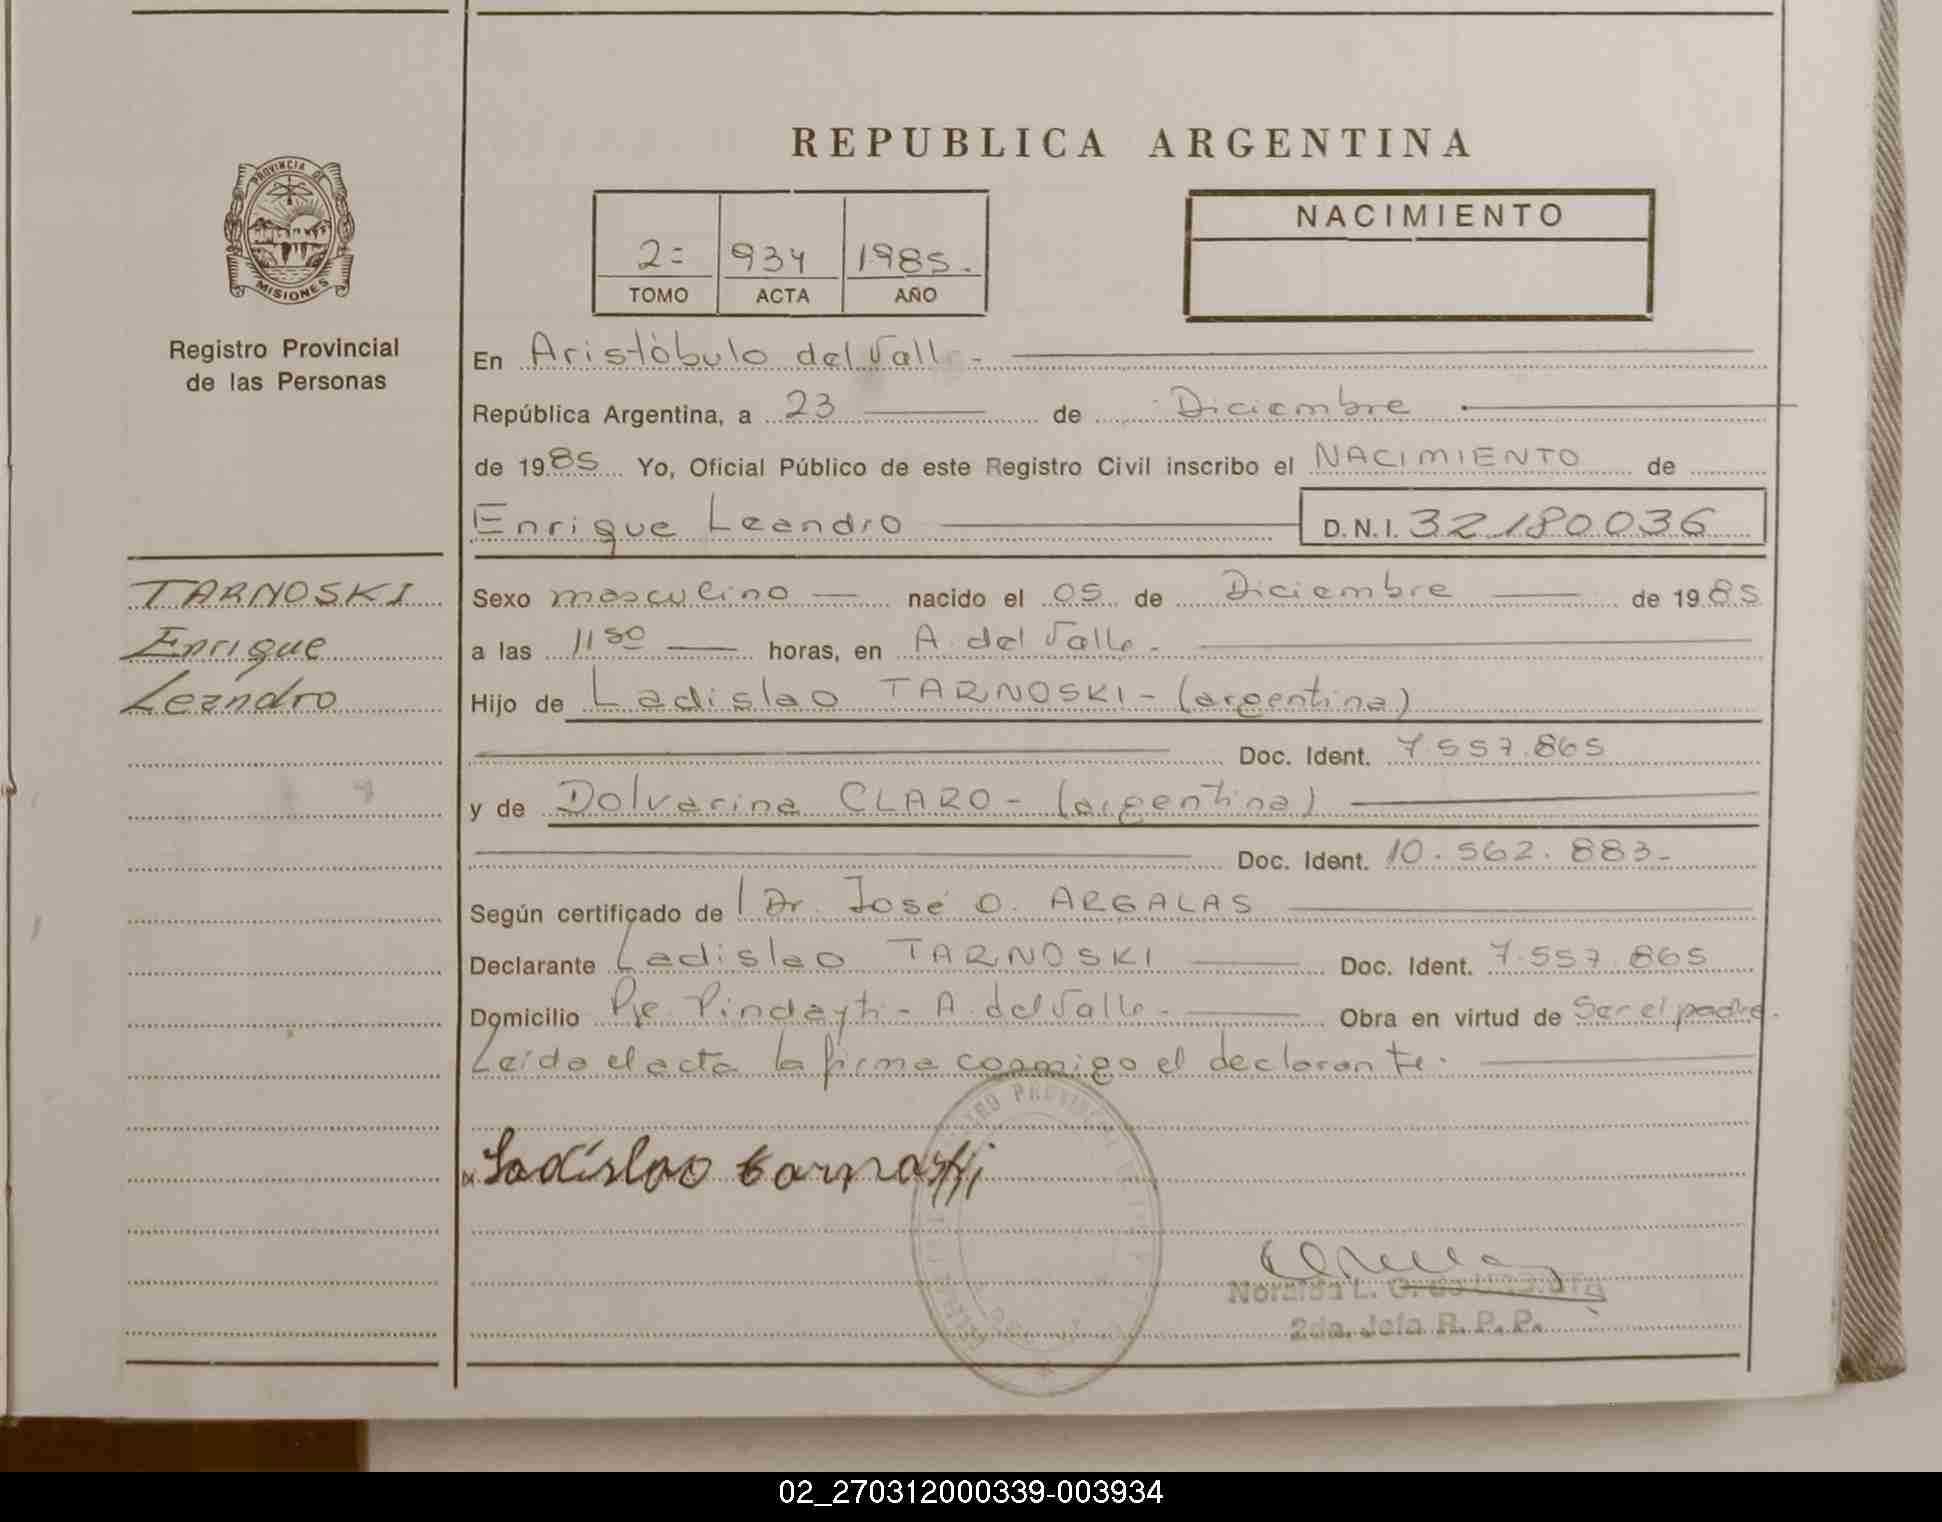 REPUBLICA ARGENTINA
PROVINCIA DE
MISIONES
Registro Provincial
de las Personas
2=
934
1985.
TOMO
ACTA
AÑO
NACIMIENTO
En Aristóbulo del Valle -
República Argentina, a 23 de Diciembre
de 1985 Yo, Oficial Público de este Registro Civil inscribo el NACIMIENTO de
Enrique Leandro D.N.I. 32.180.036
TARNOSKI
Enrique
Leandro
Sexo masculino nacido el 05 de Diciembre de 1985
a las 11 50 horas, en A. del Valle -
Hijo de Ladislao TARNOSKI - (argentina)
Doc. Ident. 7.557.865
y de Dolvarina CLARO - (argentina)
Doc. Ident. 10.562.883-
Según certificado de Dr. José O. ARGALAS
Declarante Ladislao TARNOSKI Doc. Ident. 7.557.865
Domicilio Pje. Pindayti - A. del Valle - Obra en virtud de Ser el padre.
Leída el acta la firma conmigo el declarante.
Ladislao tarnoski
Noralda L. G.
2da. Jefa R. P. P.
02_270312000339-003934